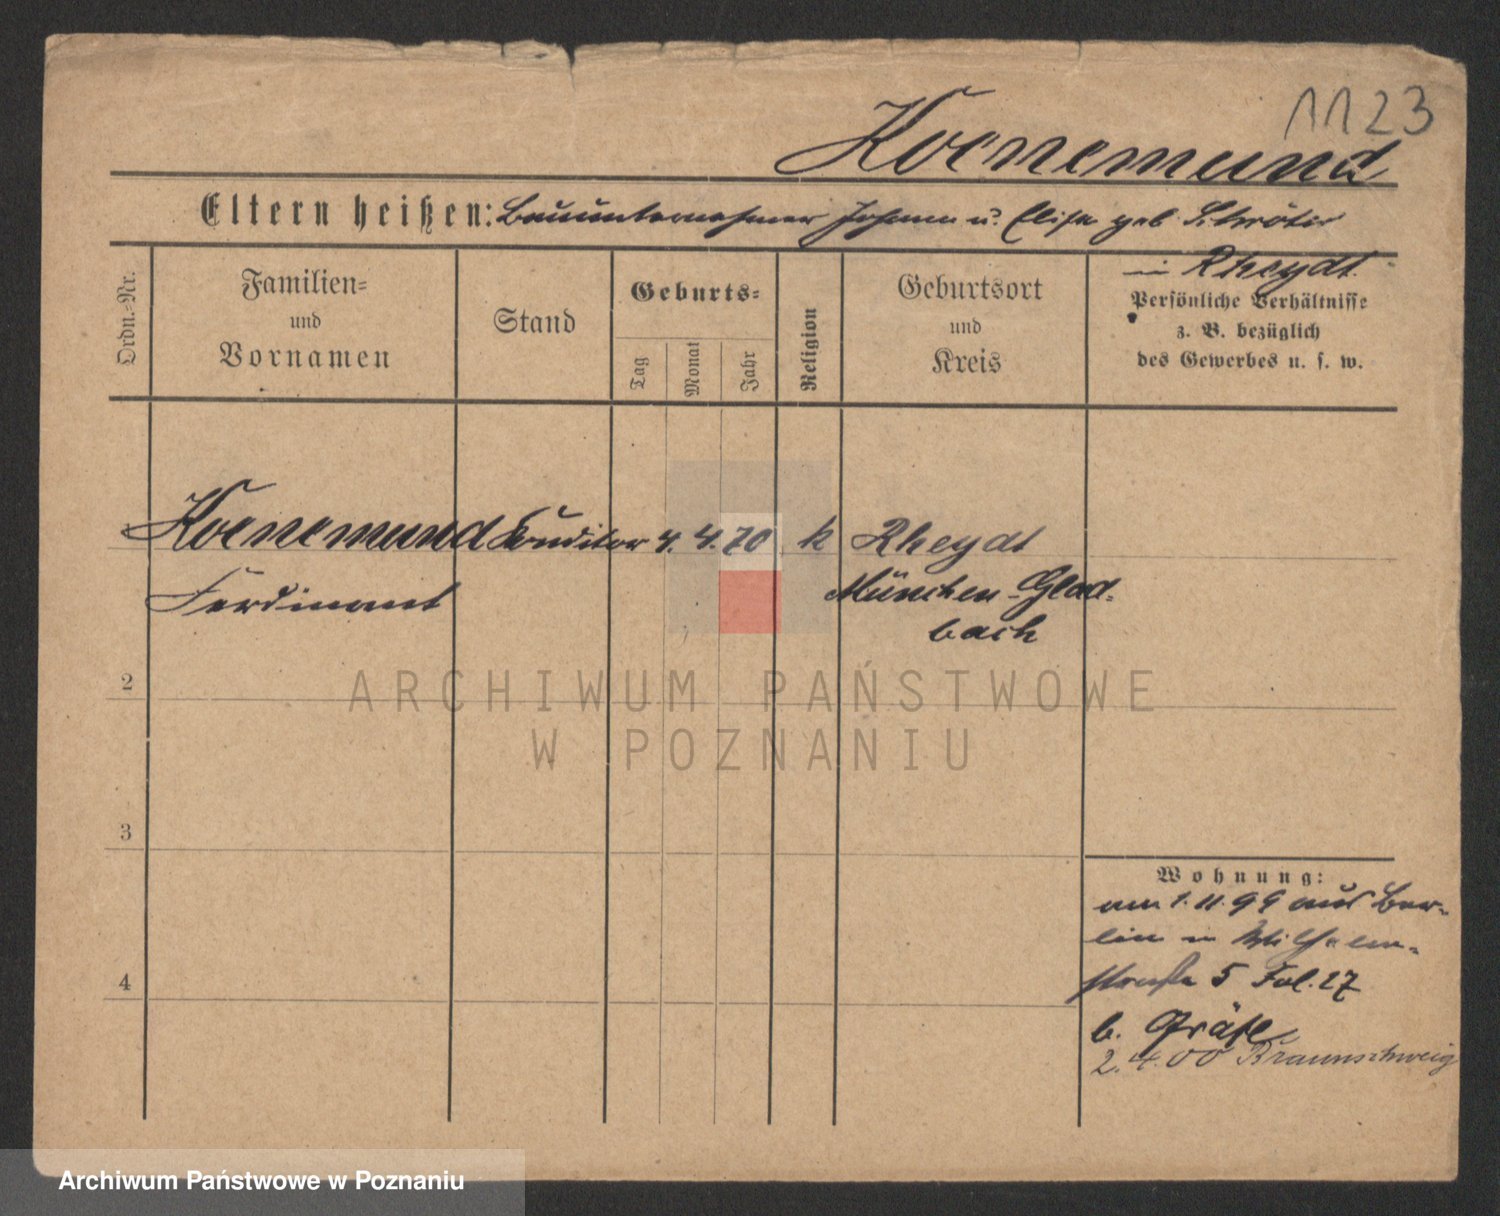 1123
Koenemund
Eltern heißen: Bauunternehmer Johann u. Elise geb. Schröter
in Rheydt
Ordn.-Nr.
Familien-
und
Vornamen
Stand
Geburts-
Tag
Monat
Jahr
Religion
Geburtsort
und
Kreis
Persönliche Verhältnisse
z. B. bezüglich
des Gewerbes u. s. w.
Koenemund Conditor 4. 4. 70 k Rheydt
Ferdinand München-Glad-
bach
2
3
4
Wohnung:
am 1.11.99 aus Ber-
lin in Wilhelm-
straße 5 Fol. 27
b. Gräfe
2.4.00 Braunschweig
ARCHIWUM PAŃSTWOWE
W POZNANIU
Archiwum Państwowe w Poznaniu